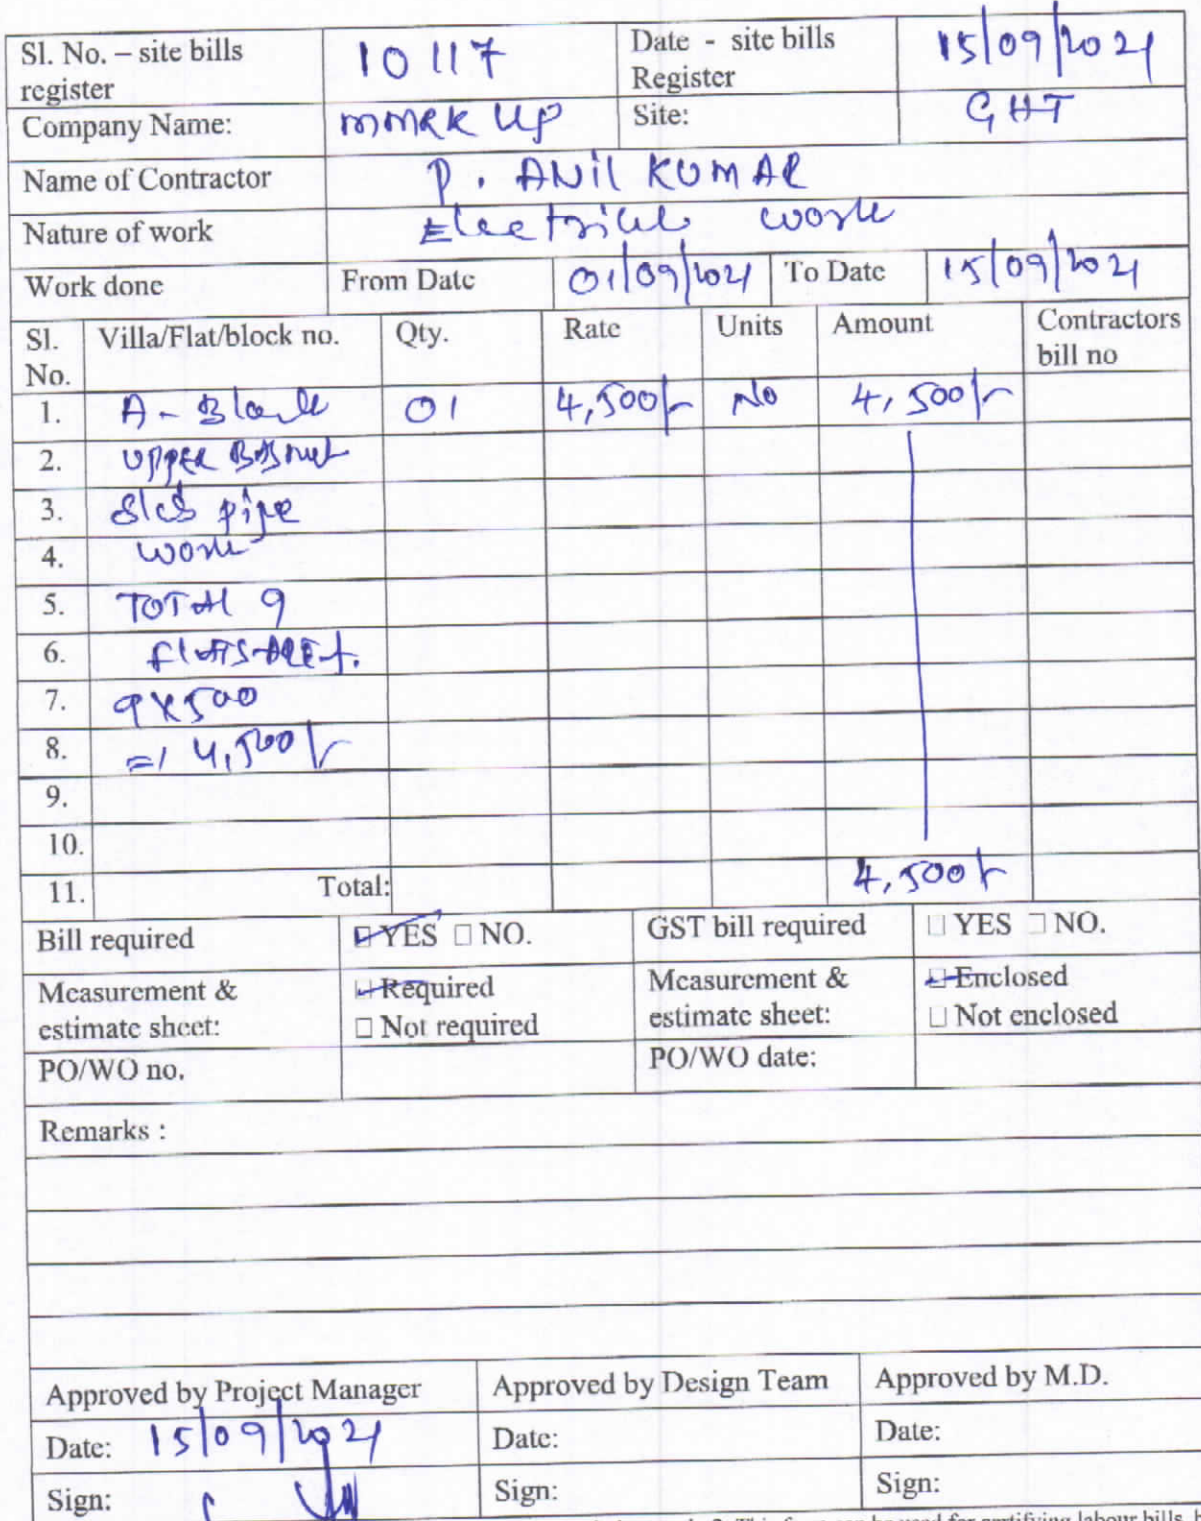 Sl. No. – site bills register 10117 Date - site bills Register 15/09/2021
Company Name: MMRK UP Site: GHT
Name of Contractor P. ANIL KUMAR
Nature of work Electrical work
Work done From Date 01/09/2021 To Date 15/09/2021
Sl. No. Villa/Flat/block no. Qty. Rate Units Amount Contractors bill no
1. A - Block 01 4,500/- No 4,500/-
2. UPPER
3. slab pipe
4. work
5. TOTAL 9
6.
7. 9X500
8. =/ 4,500/-
9.
10.
11. Total: 4,500/-
Bill required ☑ YES □ NO. GST bill required □ YES □ NO.
Measurement & estimate sheet: ☑ Required □ Not required Measurement & estimate sheet: ☑ Enclosed □ Not enclosed
PO/WO no. PO/WO date:
Remarks :
Approved by Project Manager Approved by Design Team Approved by M.D.
Date: 15/09/2021 Date: Date:
Sign: Sign: Sign: